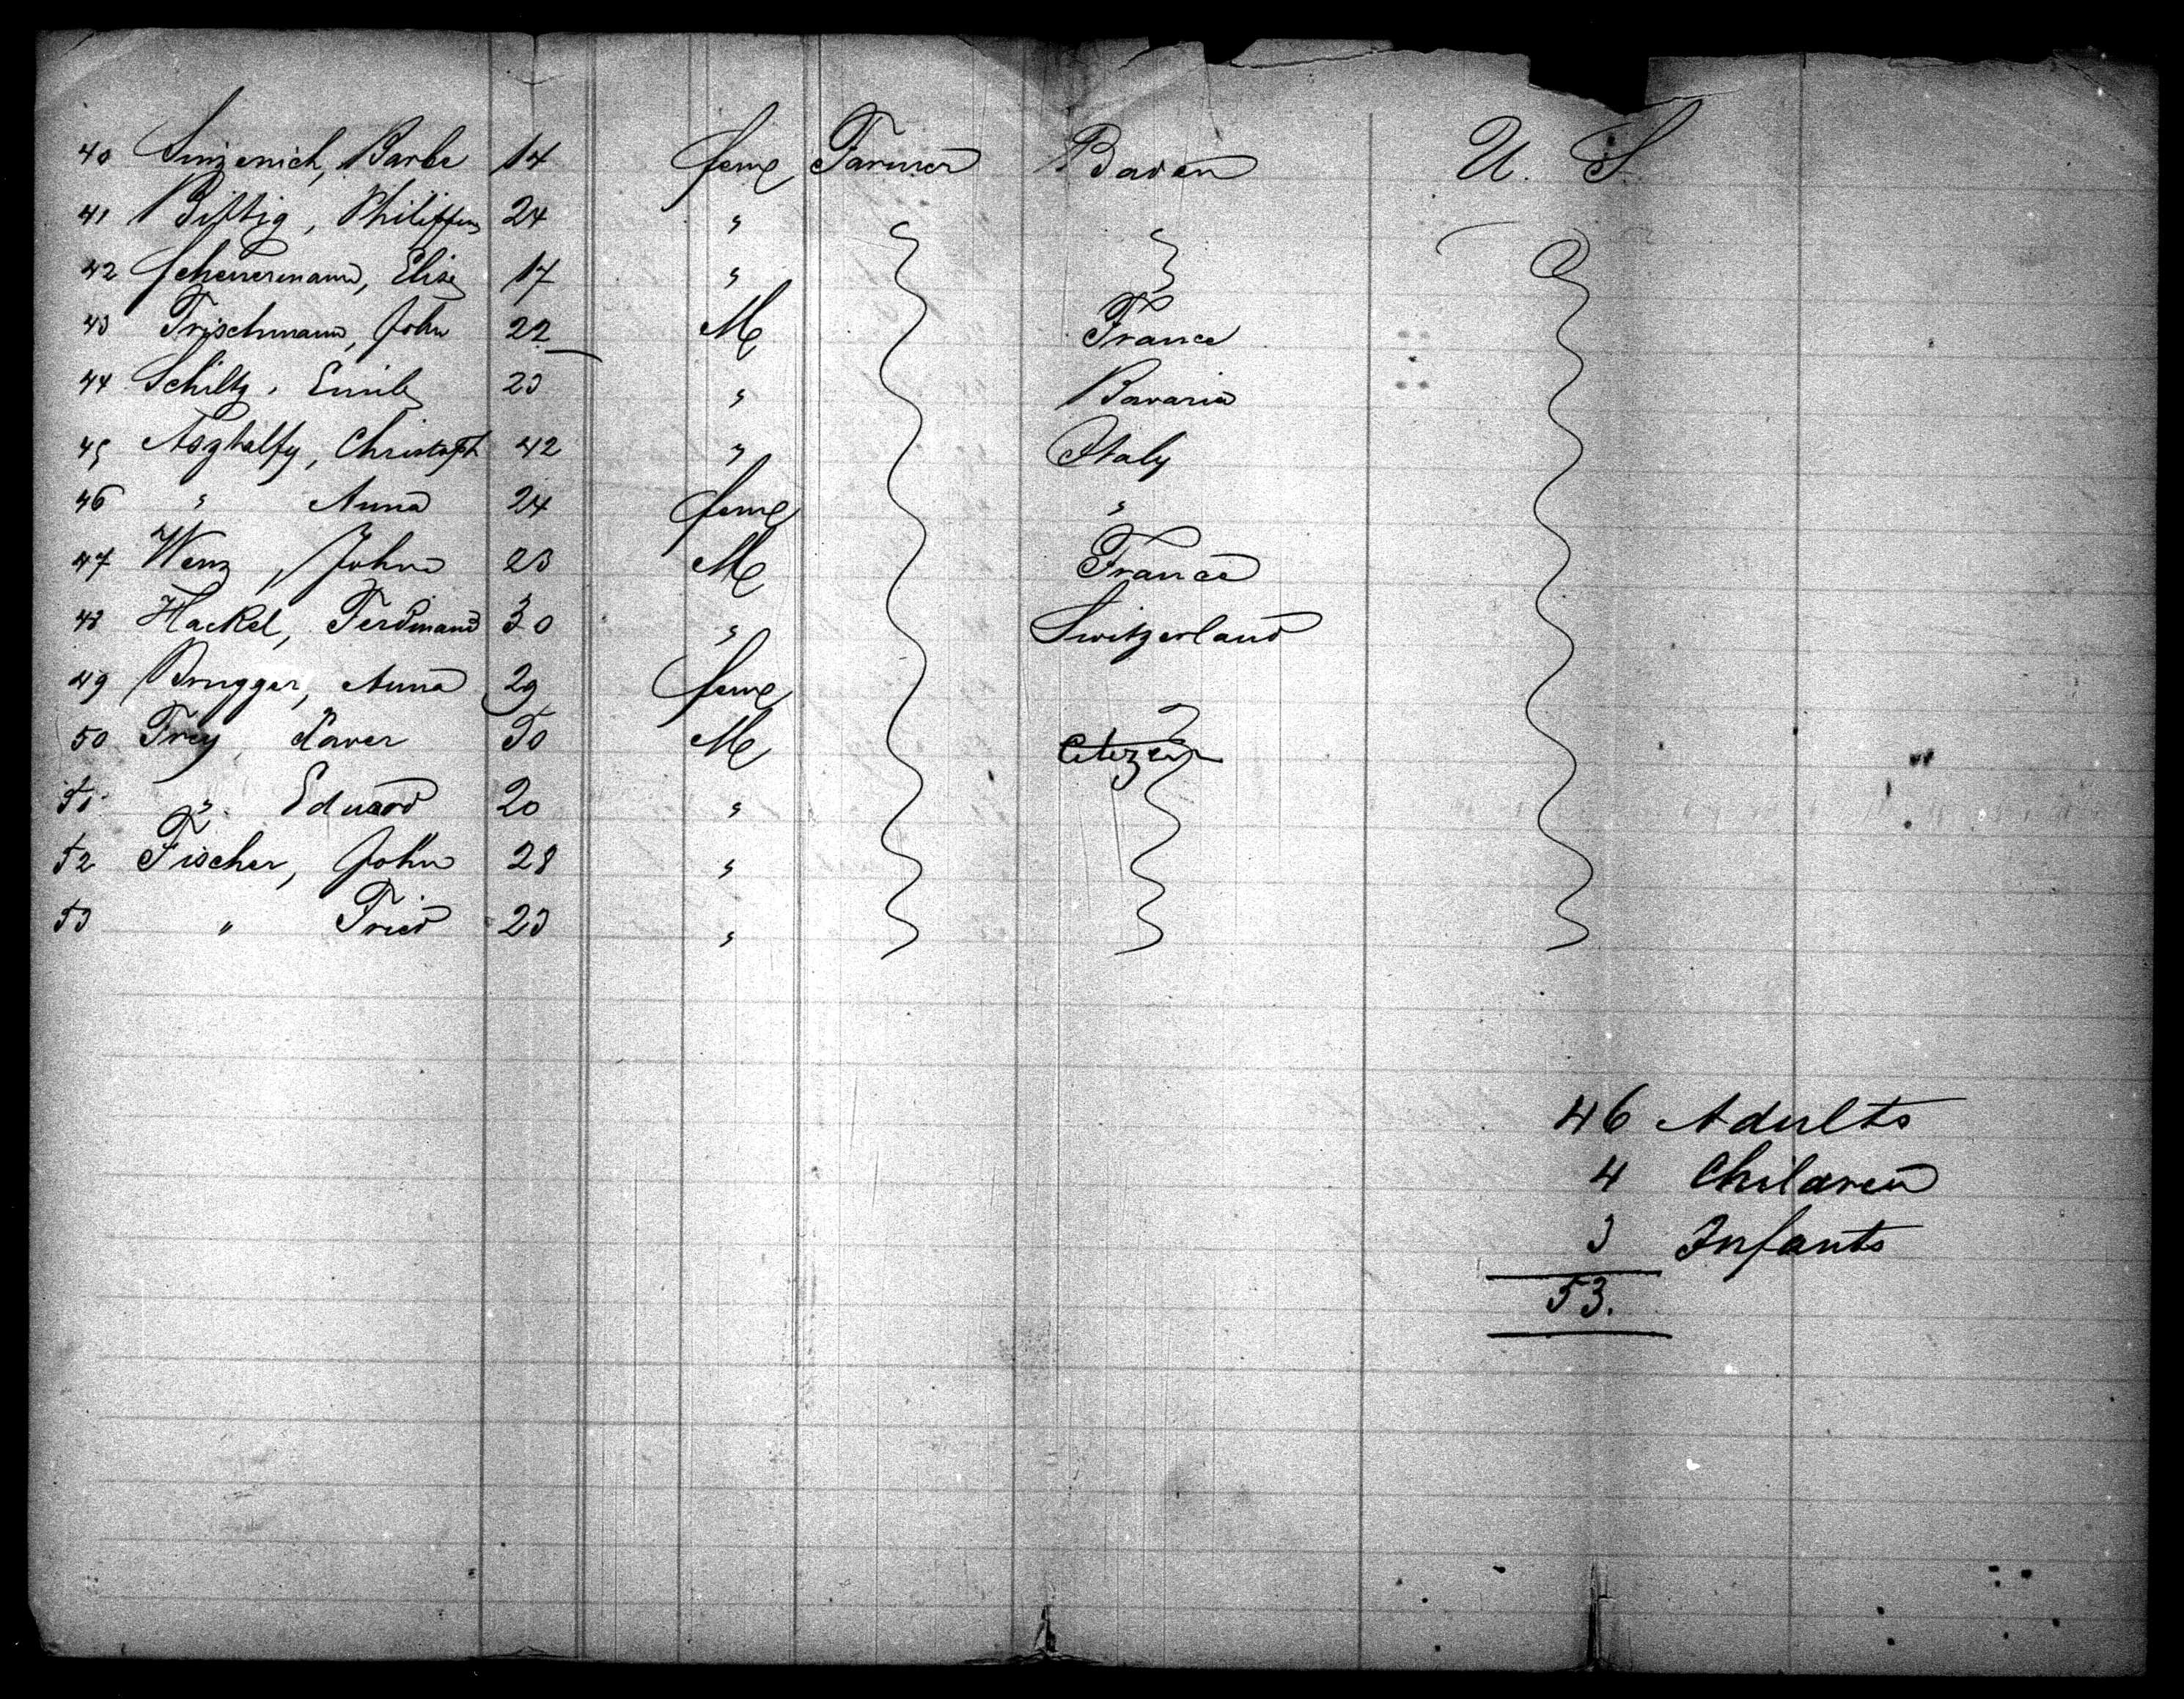 40 Sinzenich, Barbe 14 feme Farmer Baden U. S.
41 Bittig, Philippin 24 "
42 Scheuermann, Elise 17 "
43 Frischmann, John 22 M France
44 Schiltz, Emile 23 " Bavaria
45 Christoph 42 " Italy
46 " Anna 24 feme "
47 Wenz, John 23 M France
48 Hackel, Ferdinand 30 " Switzerland
49 Brugger, Anna 29 feme
50 Frey Xaver 50 M Citizen
51 " Eduard 20 "
52 Fischer, John 28 "
53 " Fried 23 "
46 Adults
4 Children
3 Infants
53.